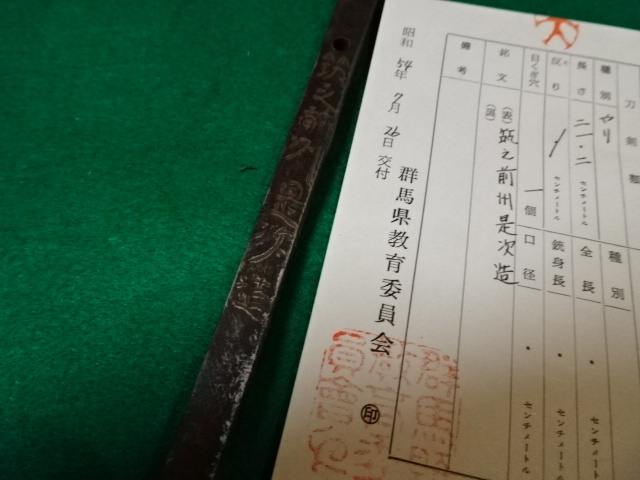 筑之前州是次造
刀剣類
種別 やり 種別
長さ 二一・二 センチメートル 全長 ・ センチメートル
反り センチメートル 銃身長 ・ センチメートル
目くぎ穴 一個 口径 ・ センチメートル
銘文 (表) 筑之前州是次造
(裏)
備考
昭和54年7月26日交付
群馬県教育委員会 ㊞